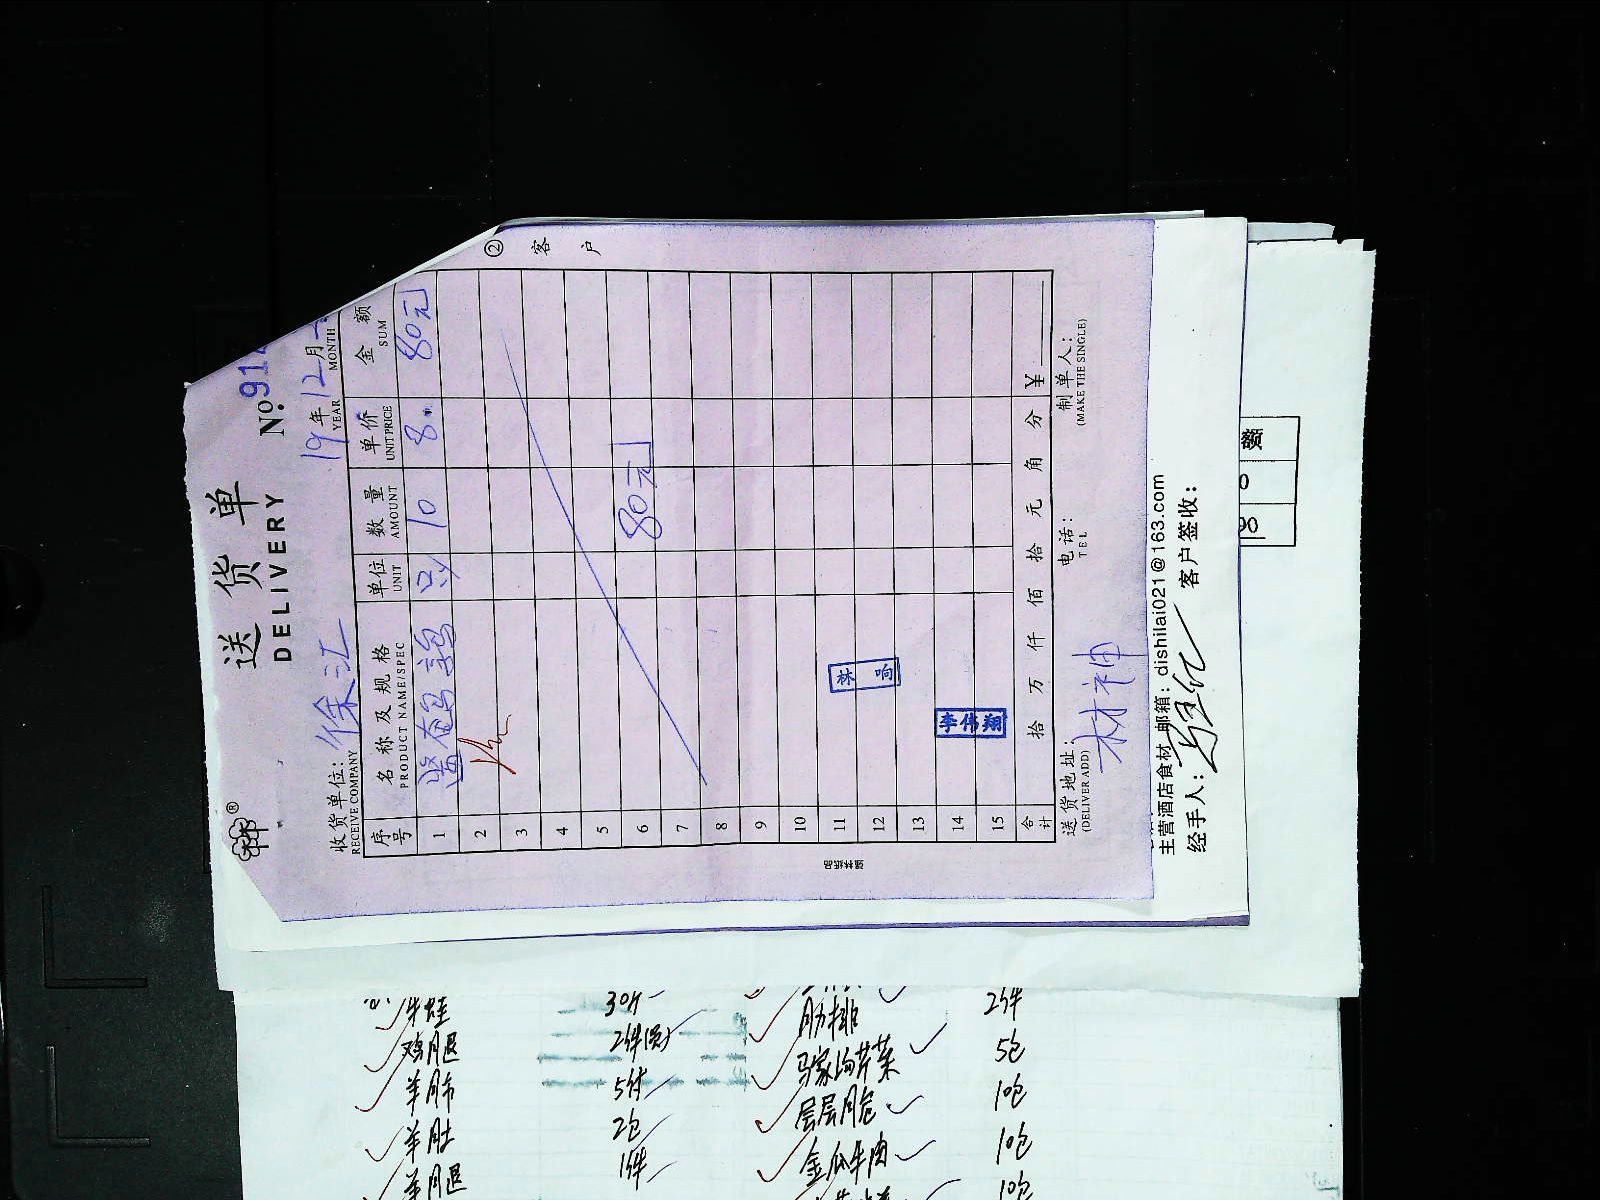 送货单
DELIVERY
No. 91
19年12月
YEAR MONTH
收货单位: 徐汇
RECEIVE COMPANY
② 客户
序号 名称及规格 单位 数量 单价 金额
PRODUCT NAME/SPEC UNIT AMOUNT UNIT PRICE SUM
1 只 10 8 80元
2
3
4
5
6 80元
7
8
9
10
11 林响
12
13
14 李伟翔
15
合计 拾 万 仟 佰 拾 元 角 分 ¥
送货地址: 电话: 制单人:
(DELIVER ADD) TEL (MAKE THE SINGLE)
主营酒店食材 邮箱: dishilai021@163.com
经手人: 客户签收:
额
0
90
牛蛙 30斤
鸡腿 2件
羊肚 2包
羊腿 1件
肋排 2件
马家沟芹菜 5包
10包
金瓜牛肉 10包
10包